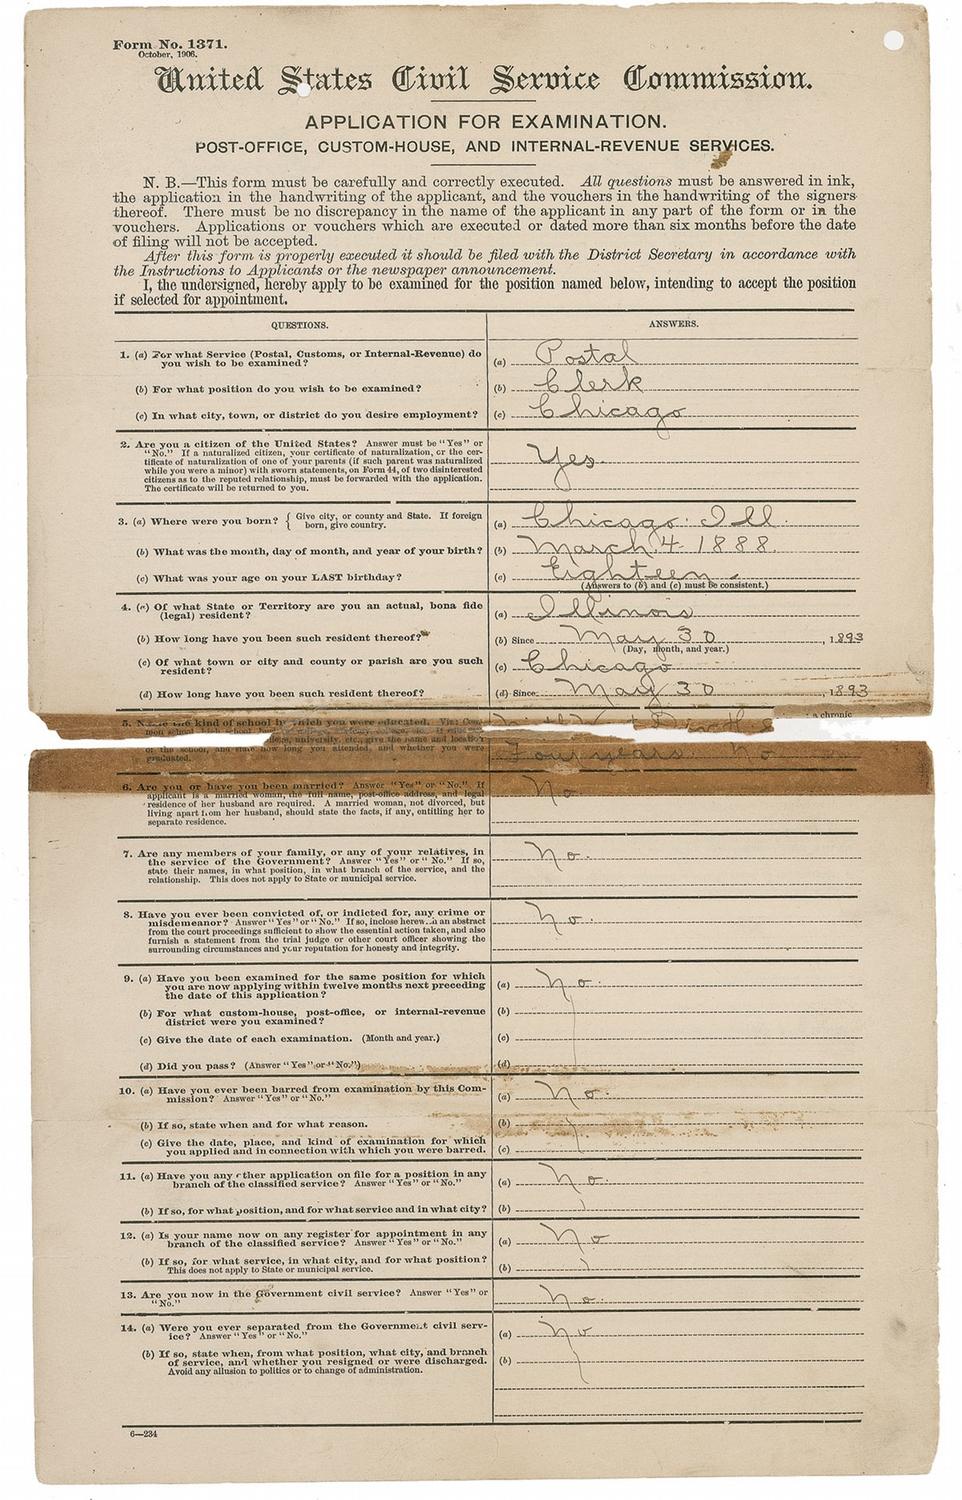 Form No. 1371.
October, 1906.
United States Civil Service Commission.
APPLICATION FOR EXAMINATION.
POST-OFFICE, CUSTOM-HOUSE, AND INTERNAL-REVENUE SERVICES.
N. B.—This form must be carefully and correctly executed. All questions must be answered in ink,
the application in the handwriting of the applicant, and the vouchers in the handwriting of the signers
thereof. There must be no discrepancy in the name of the applicant in any part of the form or in the
vouchers. Applications or vouchers which are executed or dated more than six months before the date
of filing will not be accepted.
After this form is properly executed it should be filed with the District Secretary in accordance with
the Instructions to Applicants or the newspaper announcement.
I, the undersigned, hereby apply to be examined for the position named below, intending to accept the position
if selected for appointment.
QUESTIONS. ANSWERS.
1. (a) For what Service (Postal, Customs, or Internal-Revenue) do
you wish to be examined? (a) Postal
(b) For what position do you wish to be examined? (b) Clerk
(c) In what city, town, or district do you desire employment? (c) Chicago
2. Are you a citizen of the United States? Answer must be "Yes" or
"No." If a naturalized citizen, your certificate of naturalization, or the cer-
tificate of naturalization of one of your parents (if such parent was naturalized
while you were a minor) with sworn statements, on Form 44, of two disinterested
citizens as to the reputed relationship, must be forwarded with the application.
The certificate will be returned to you.
Yes.
3. (a) Where were you born? { Give city, or county and State. If foreign
born, give country. (a) Chicago. Ill.
(b) What was the month, day of month, and year of your birth? (b) March 4 - 1888.
(c) What was your age on your LAST birthday? (c) Eighteen
(Answers to (b) and (c) must be consistent.)
4. (a) Of what State or Territory are you an actual, bona fide
(legal) resident? (a) Illinois
(b) How long have you been such resident thereof? (b) Since May 30, 1893
(Day, month, and year.)
(c) Of what town or city and county or parish are you such
resident? (c) Chicago
(d) How long have you been such resident thereof? (d) Since May 30, 1893
: a chronic
5. Name the kind of school in which you were educated.
university, etc., give the name and location
of the school, and state how long you attended, and whether you were
graduated. Four years. No
6. Are you or have you been married? Answer "Yes" or "No." If
applicant is a married woman, the full name, post-office address, and legal
residence of her husband are required. A married woman, not divorced, but
living apart from her husband, should state the facts, if any, entitling her to
separate residence.
No
7. Are any members of your family, or any of your relatives, in
the service of the Government? Answer "Yes" or "No." If so,
state their names, in what position, in what branch of the service, and the
relationship. This does not apply to State or municipal service.
No.
8. Have you ever been convicted of, or indicted for, any crime or
misdemeanor? Answer "Yes" or "No." If so, inclose herewith an abstract
from the court proceedings sufficient to show the essential action taken, and also
furnish a statement from the trial judge or other court officer showing the
surrounding circumstances and your reputation for honesty and integrity.
No.
9. (a) Have you been examined for the same position for which
you are now applying within twelve months next preceding
the date of this application? (a) No.
(b) For what custom-house, post-office, or internal-revenue
district were you examined? (b)
(c) Give the date of each examination. (Month and year.) (c)
(d) Did you pass? (Answer "Yes" or "No.") (d)
10. (a) Have you ever been barred from examination by this Com-
mission? Answer "Yes" or "No." (a) No.
(b) If so, state when and for what reason. (b)
(c) Give the date, place, and kind of examination for which
you applied and in connection with which you were barred. (c)
11. (a) Have you any other application on file for a position in any
branch of the classified service? Answer "Yes" or "No." (a) No.
(b) If so, for what position, and for what service and in what city? (b)
12. (a) Is your name now on any register for appointment in any
branch of the classified service? Answer "Yes" or "No." (a) No
(b) If so, for what service, in what city, and for what position?
This does not apply to State or municipal service. (b)
13. Are you now in the Government civil service? Answer "Yes" or
"No." No.
14. (a) Were you ever separated from the Government civil serv-
ice? Answer "Yes" or "No." (a) No
(b) If so, state when, from what position, what city, and branch
of service, and whether you resigned or were discharged.
Avoid any allusion to politics or to change of administration. (b)
6—234